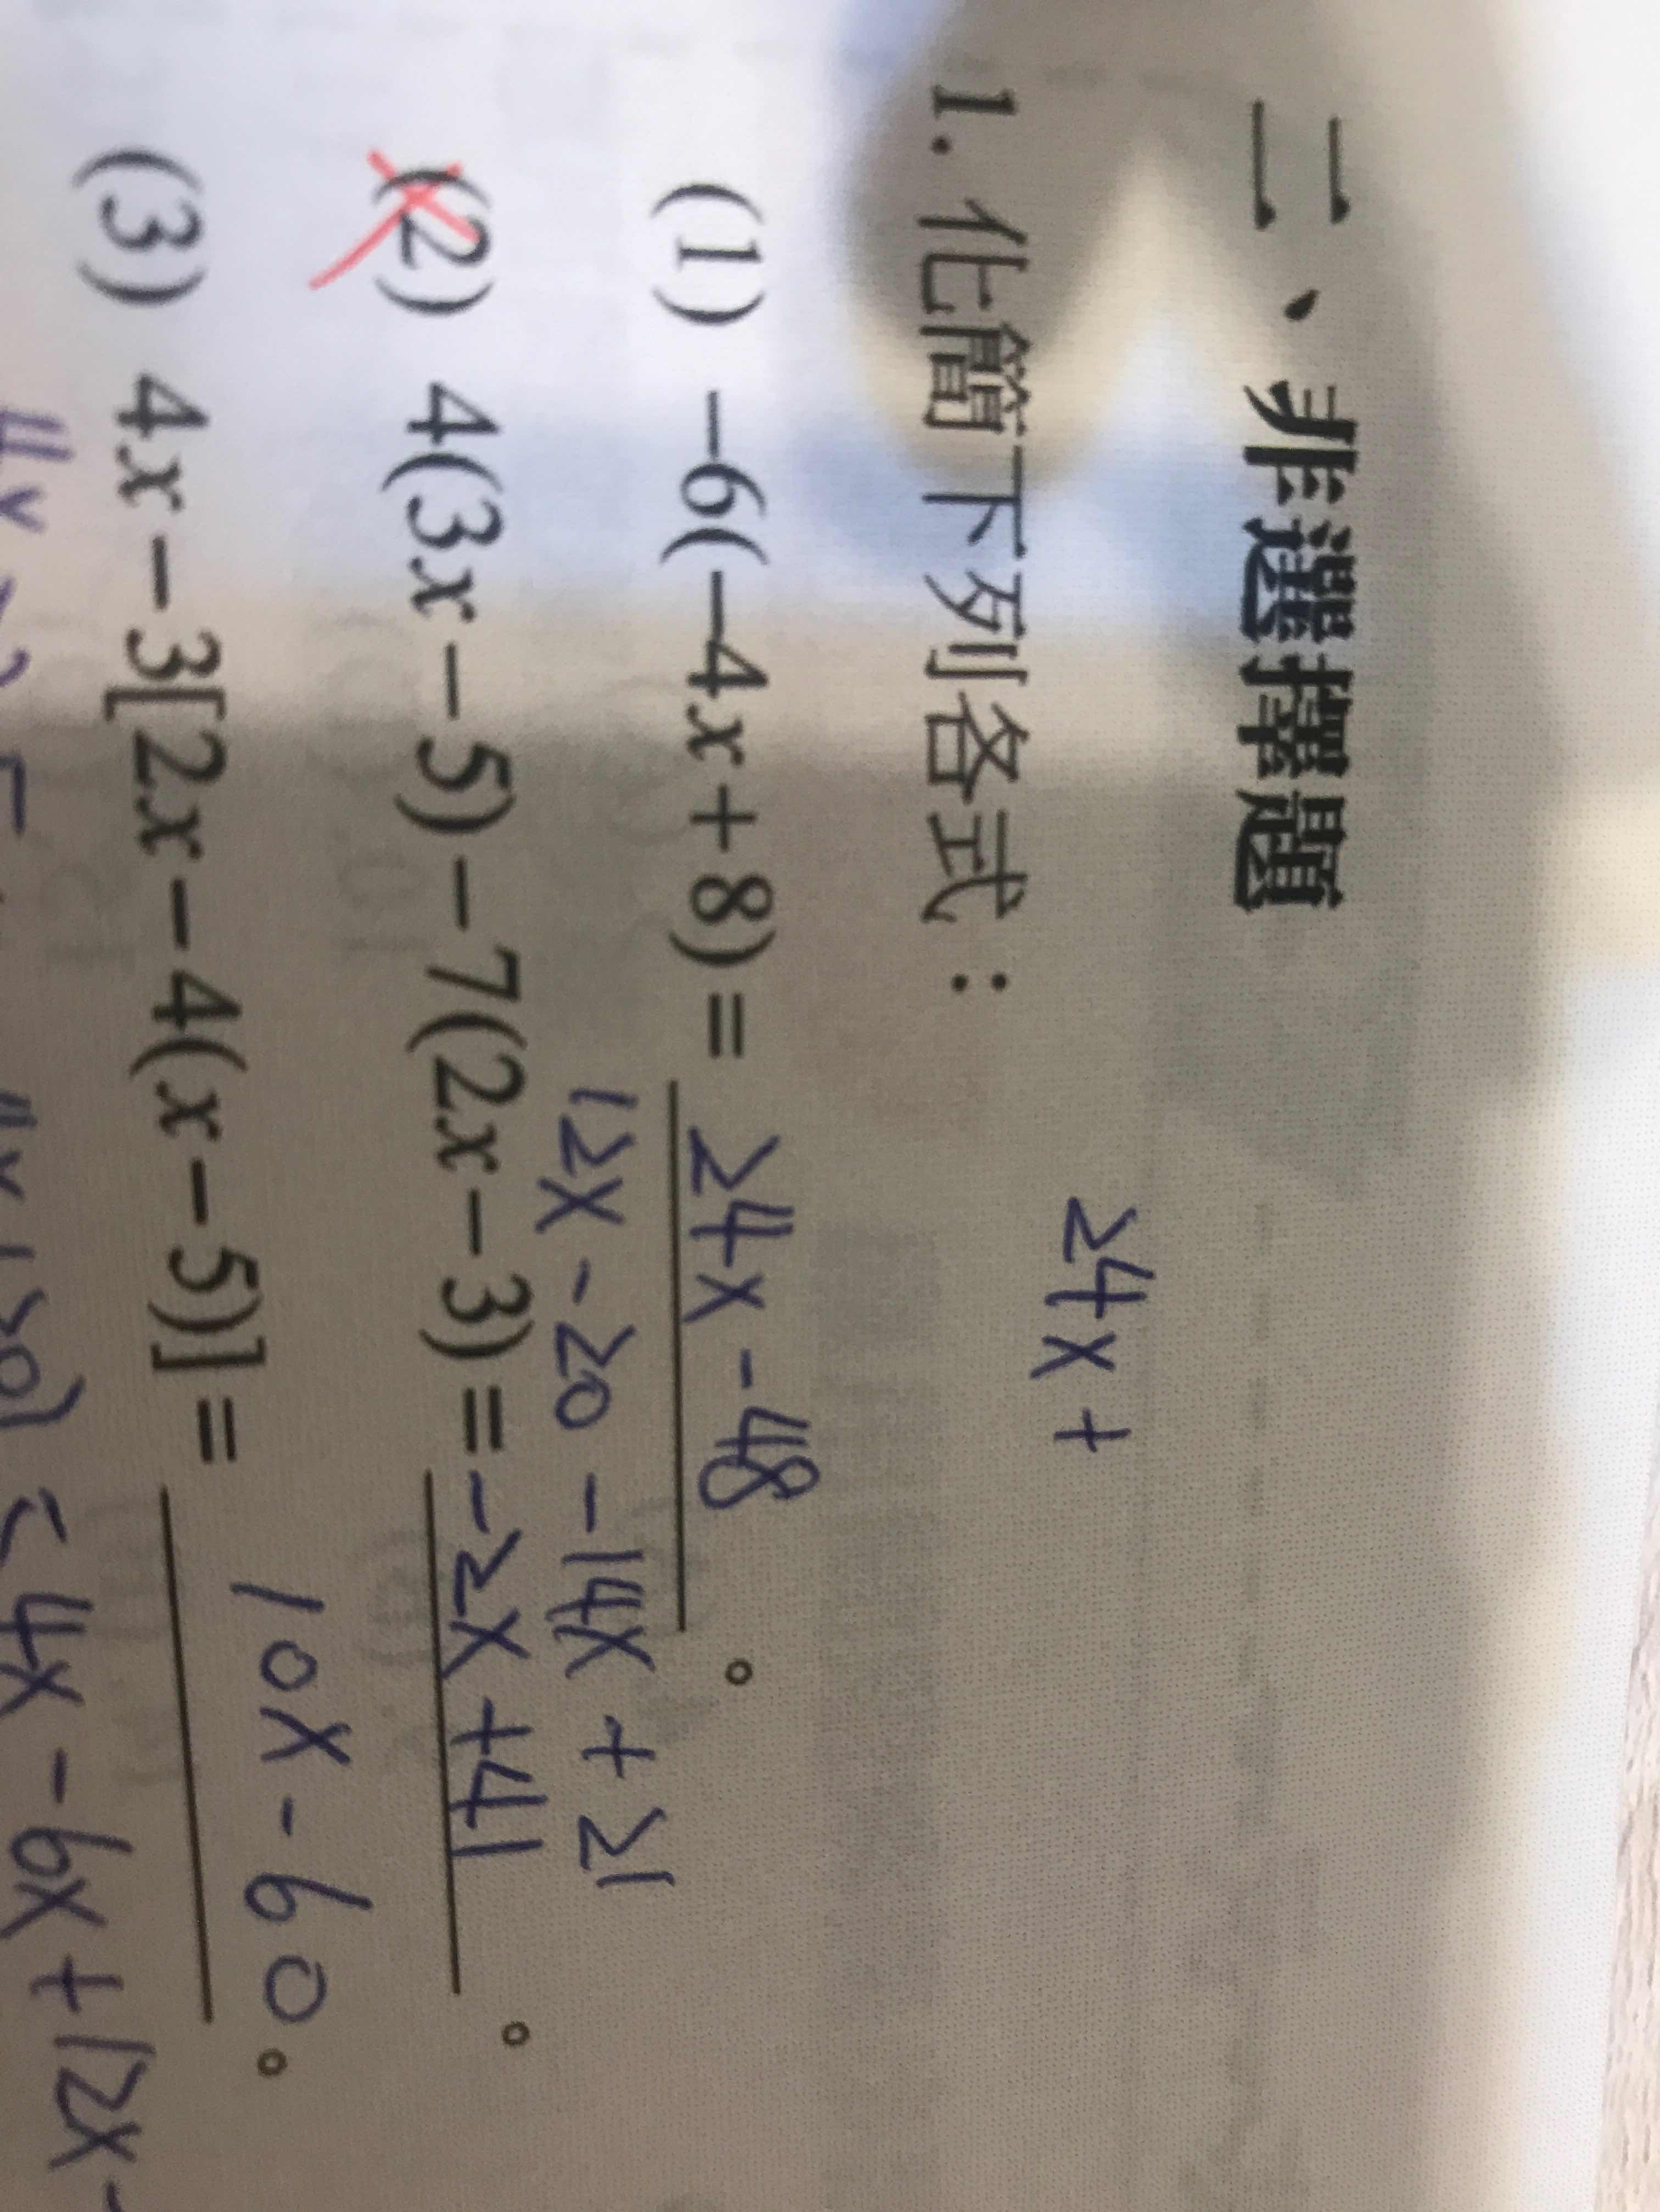 二、非選擇題
24x +
1. 化簡下列各式：
(1) -6(-4x+8)= 24x-48 。
12x-20-14x+21
(2) 4(3x-5)-7(2x-3)= -2x+41 。
10x-60
(3) 4x-3[2x-4(x-5)]= 。
4x-6x+12x-